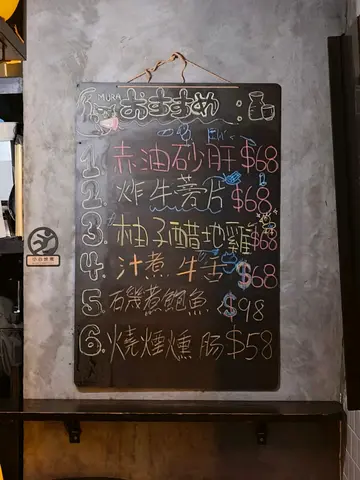 MURA
おすすめ:
1. 赤油砂肝 $68
2. 炸牛蒡片 $68
3. 柚子醋地雞 $68
4. 汁煮牛舌 $68
5. 石磯煮鮑魚 $98
6. 燒煙燻腸 $58
小心地滑